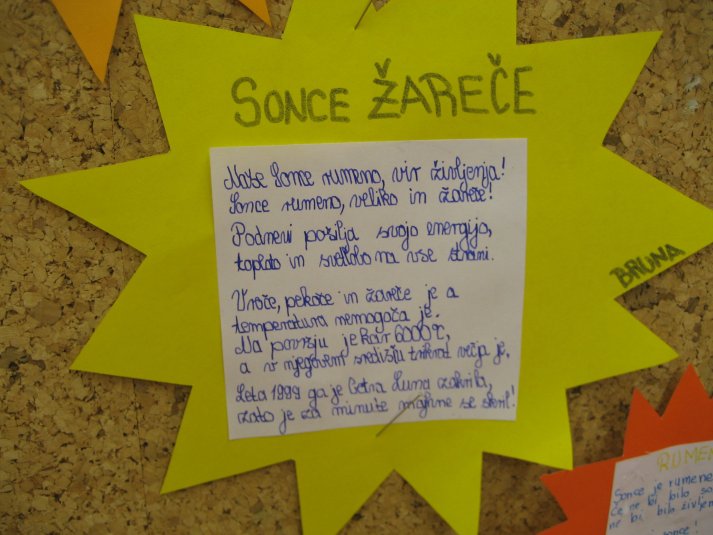 SONCE ŽAREČE
Naše Sonce rumeno, vir življenja!
Sonce rumeno, veliko in žareče!
Podnevi pošilja svojo energijo,
toploto in svetlobo na vse strani.
Vroče, pekoče in žareče je a
temperatura nemogoča je.
Na površju je kar 6000°C,
a v njegovem središču trikrat večja je.
Leta 1999 ga je Luna zakrila,
zato je za minute se skril!
BRUNA
RUMEN
Sonce je rumene
Če ne bi bilo so
ne bi bilo življen